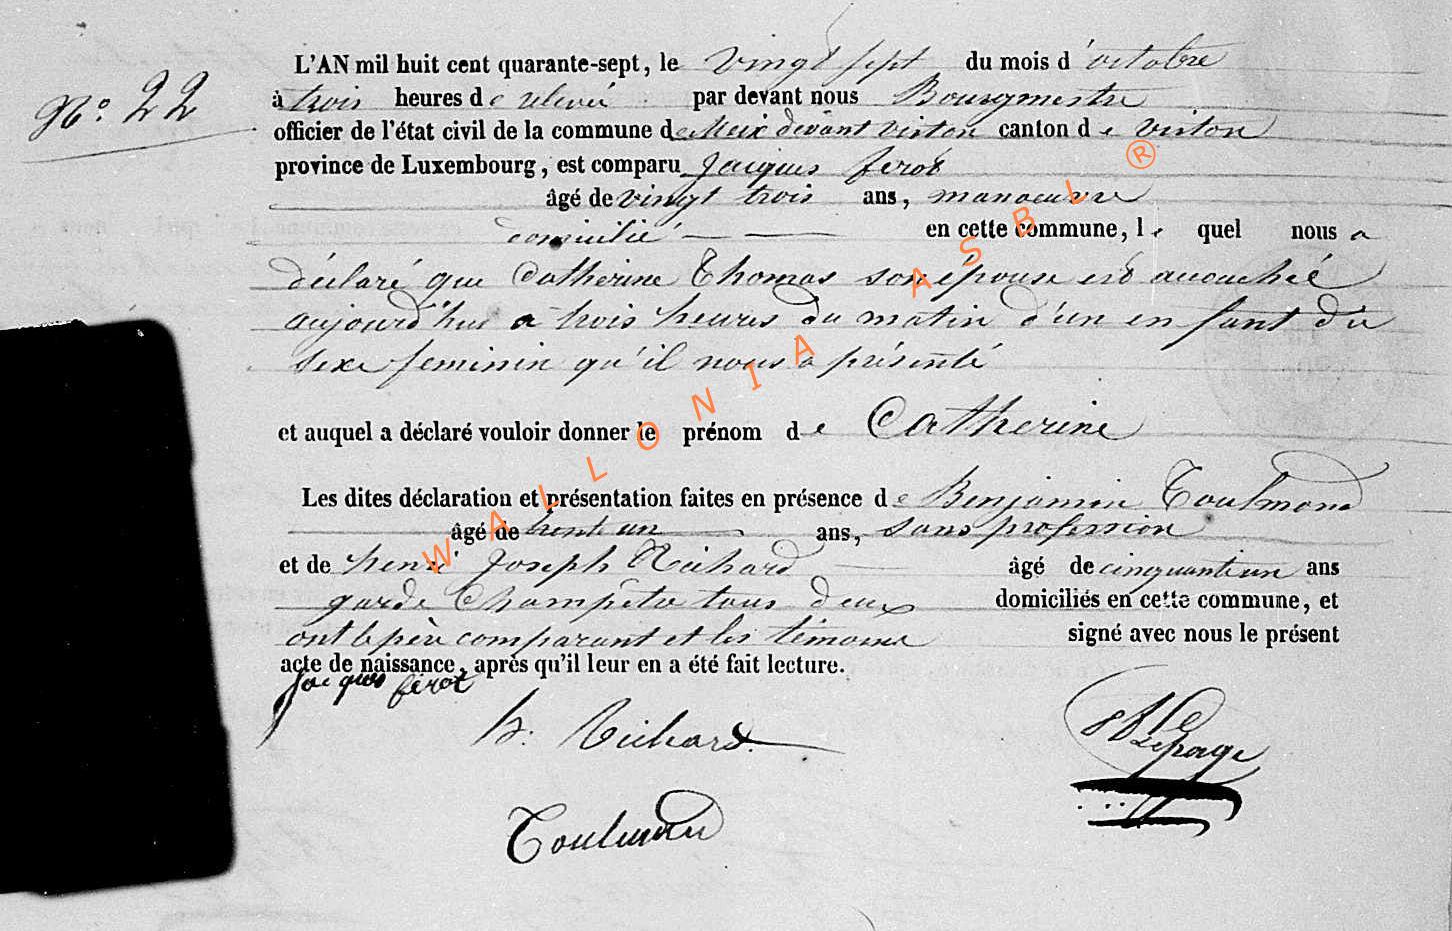 L'AN mil huit cent quarante-sept, le vingt sept du mois d'octobre
N.° 22
à trois heures de relevée par devant nous Bourgmestre
officier de l'état civil de la commune de Meix devant virton canton de virton
province de Luxembourg, est comparu Jacques ferot
âgé de vingt trois ans, manoeuvre
domicilié en cette commune, le quel nous a
déclaré que Catherine Thomas son épouse est accouchée
aujourd'hui a trois heures du matin d'un enfant du
sexe feminin qu'il nous a présenté
et auquel a déclaré vouloir donner le prénom de Catherine
Les dites déclaration et présentation faites en présence de Benjamin Toulmond
âgé de trente un ans, sans profession
et de henri Joseph Richard âgé de cinquante un ans
garde Champêtre tous deux domiciliés en cette commune, et
ont le père comparant et les témoins signé avec nous le présent
acte de naissance, après qu'il leur en a été fait lecture.
Jacques férot
h. Richard
Lepage
Toulmond
WALLONIA ASBL ®